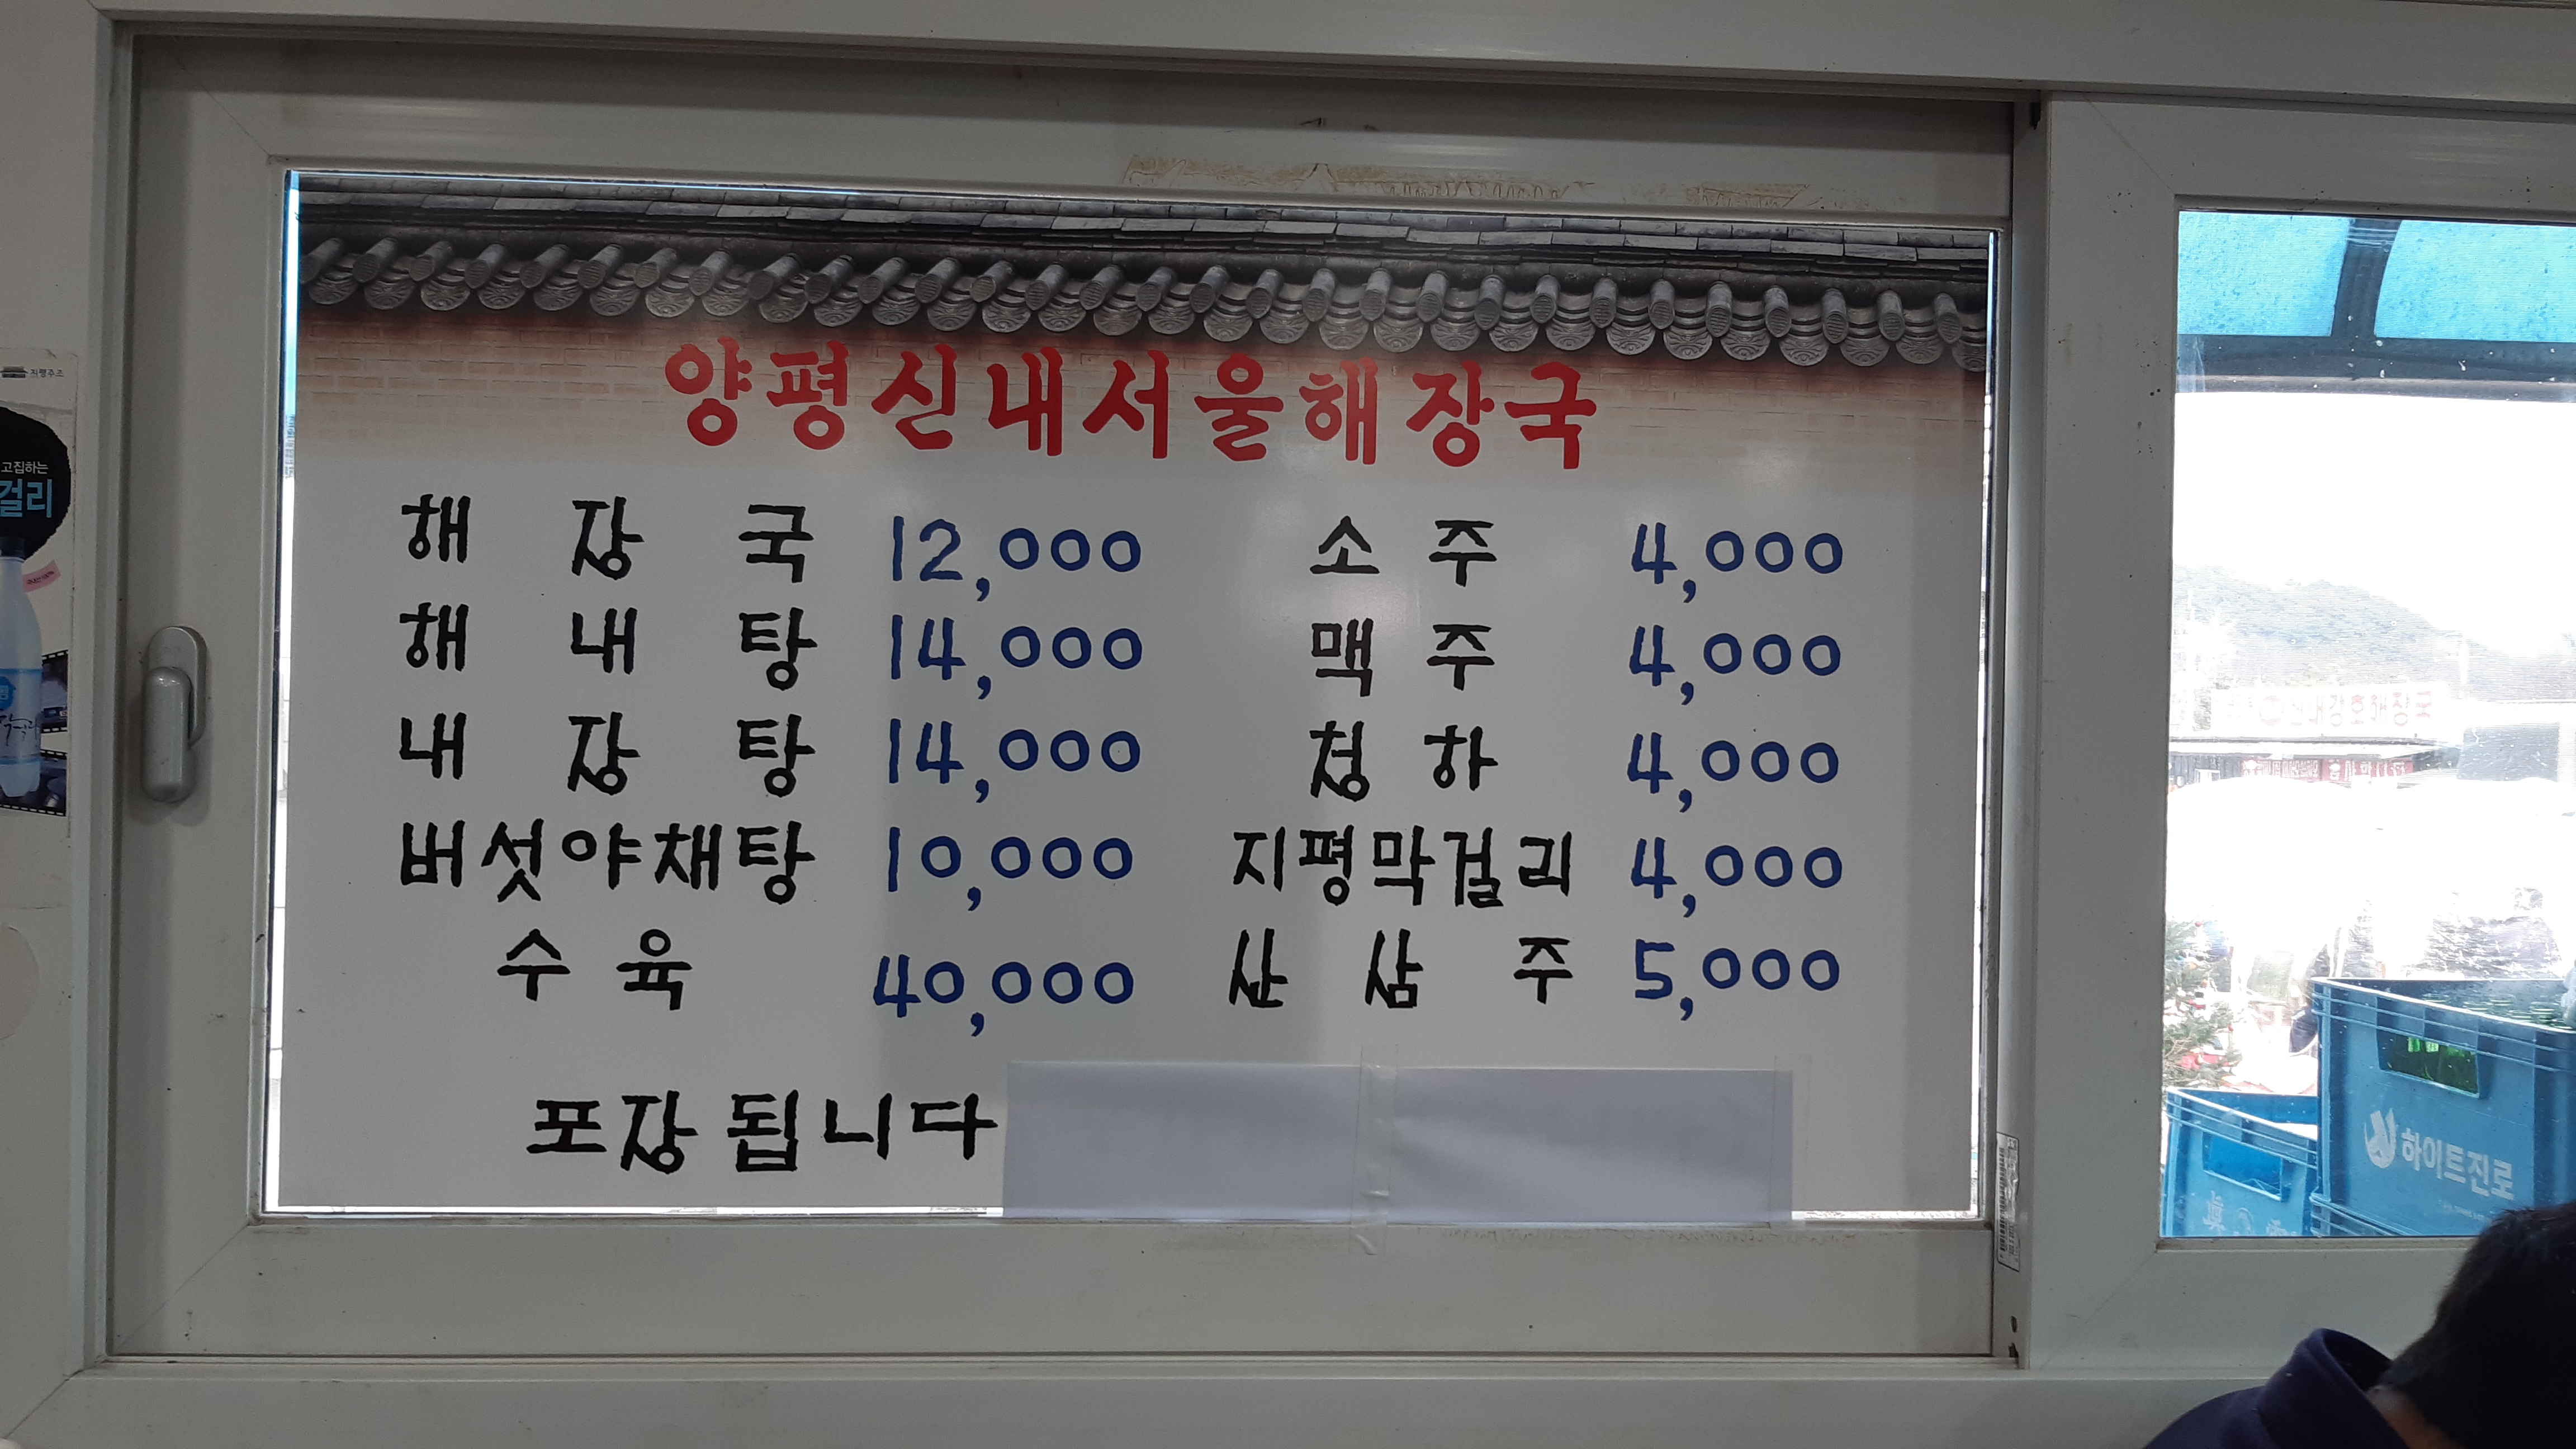 양평신내서울해장국
해장국 12,000
해내탕 14,000
내장탕 14,000
버섯야채탕 10,000
수육 40,000
포장됩니다
소주 4,000
맥주 4,000
청하 4,000
지평막걸리 4,000
산삼주 5,000
지평주조
고집하는
걸리
신내강호해장국
하이트진로